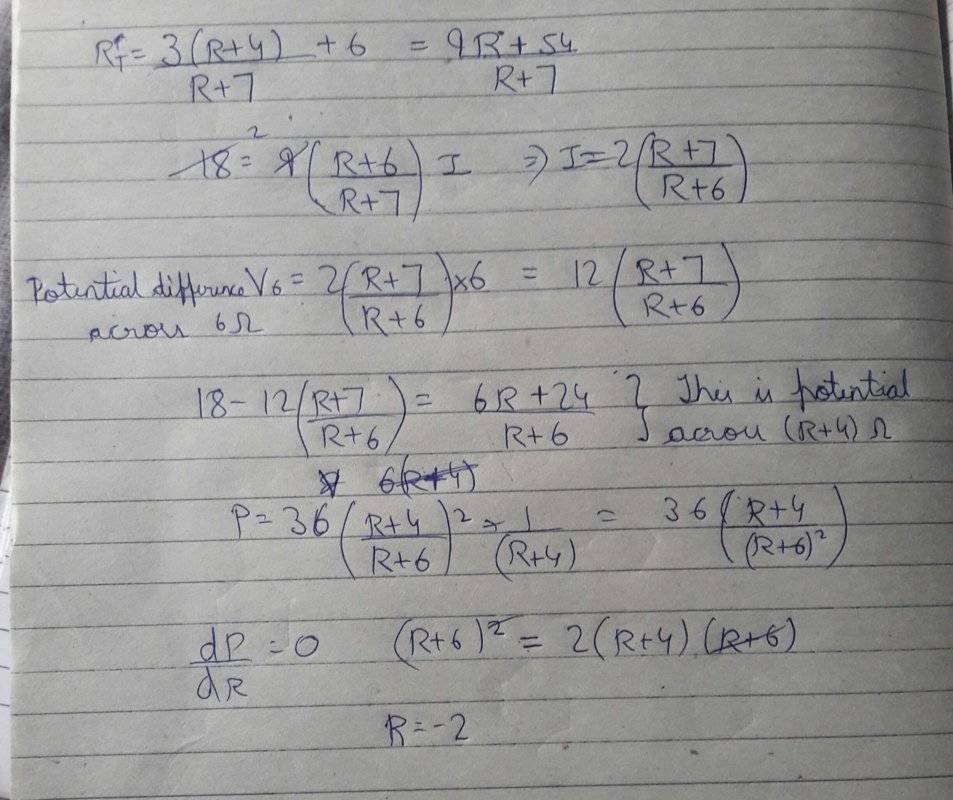 R_T = 3(R+4)/(R+7) + 6 = (9R+54)/(R+7)
18 = 9((R+6)/(R+7)) I ⇒ I = 2((R+7)/(R+6))
2
Potential difference V6 = 2((R+7)/(R+6))×6 = 12((R+7)/(R+6))
across 6Ω
18 - 12((R+7)/(R+6)) = (6R+24)/(R+6) } This is potential
across (R+4) Ω
6(R+4)
P = 36((R+4)/(R+6))² × 1/(R+4) = 36((R+4)/(R+6)²)
dP/dR = 0 (R+6)² = 2(R+4)(R+6)
R = -2